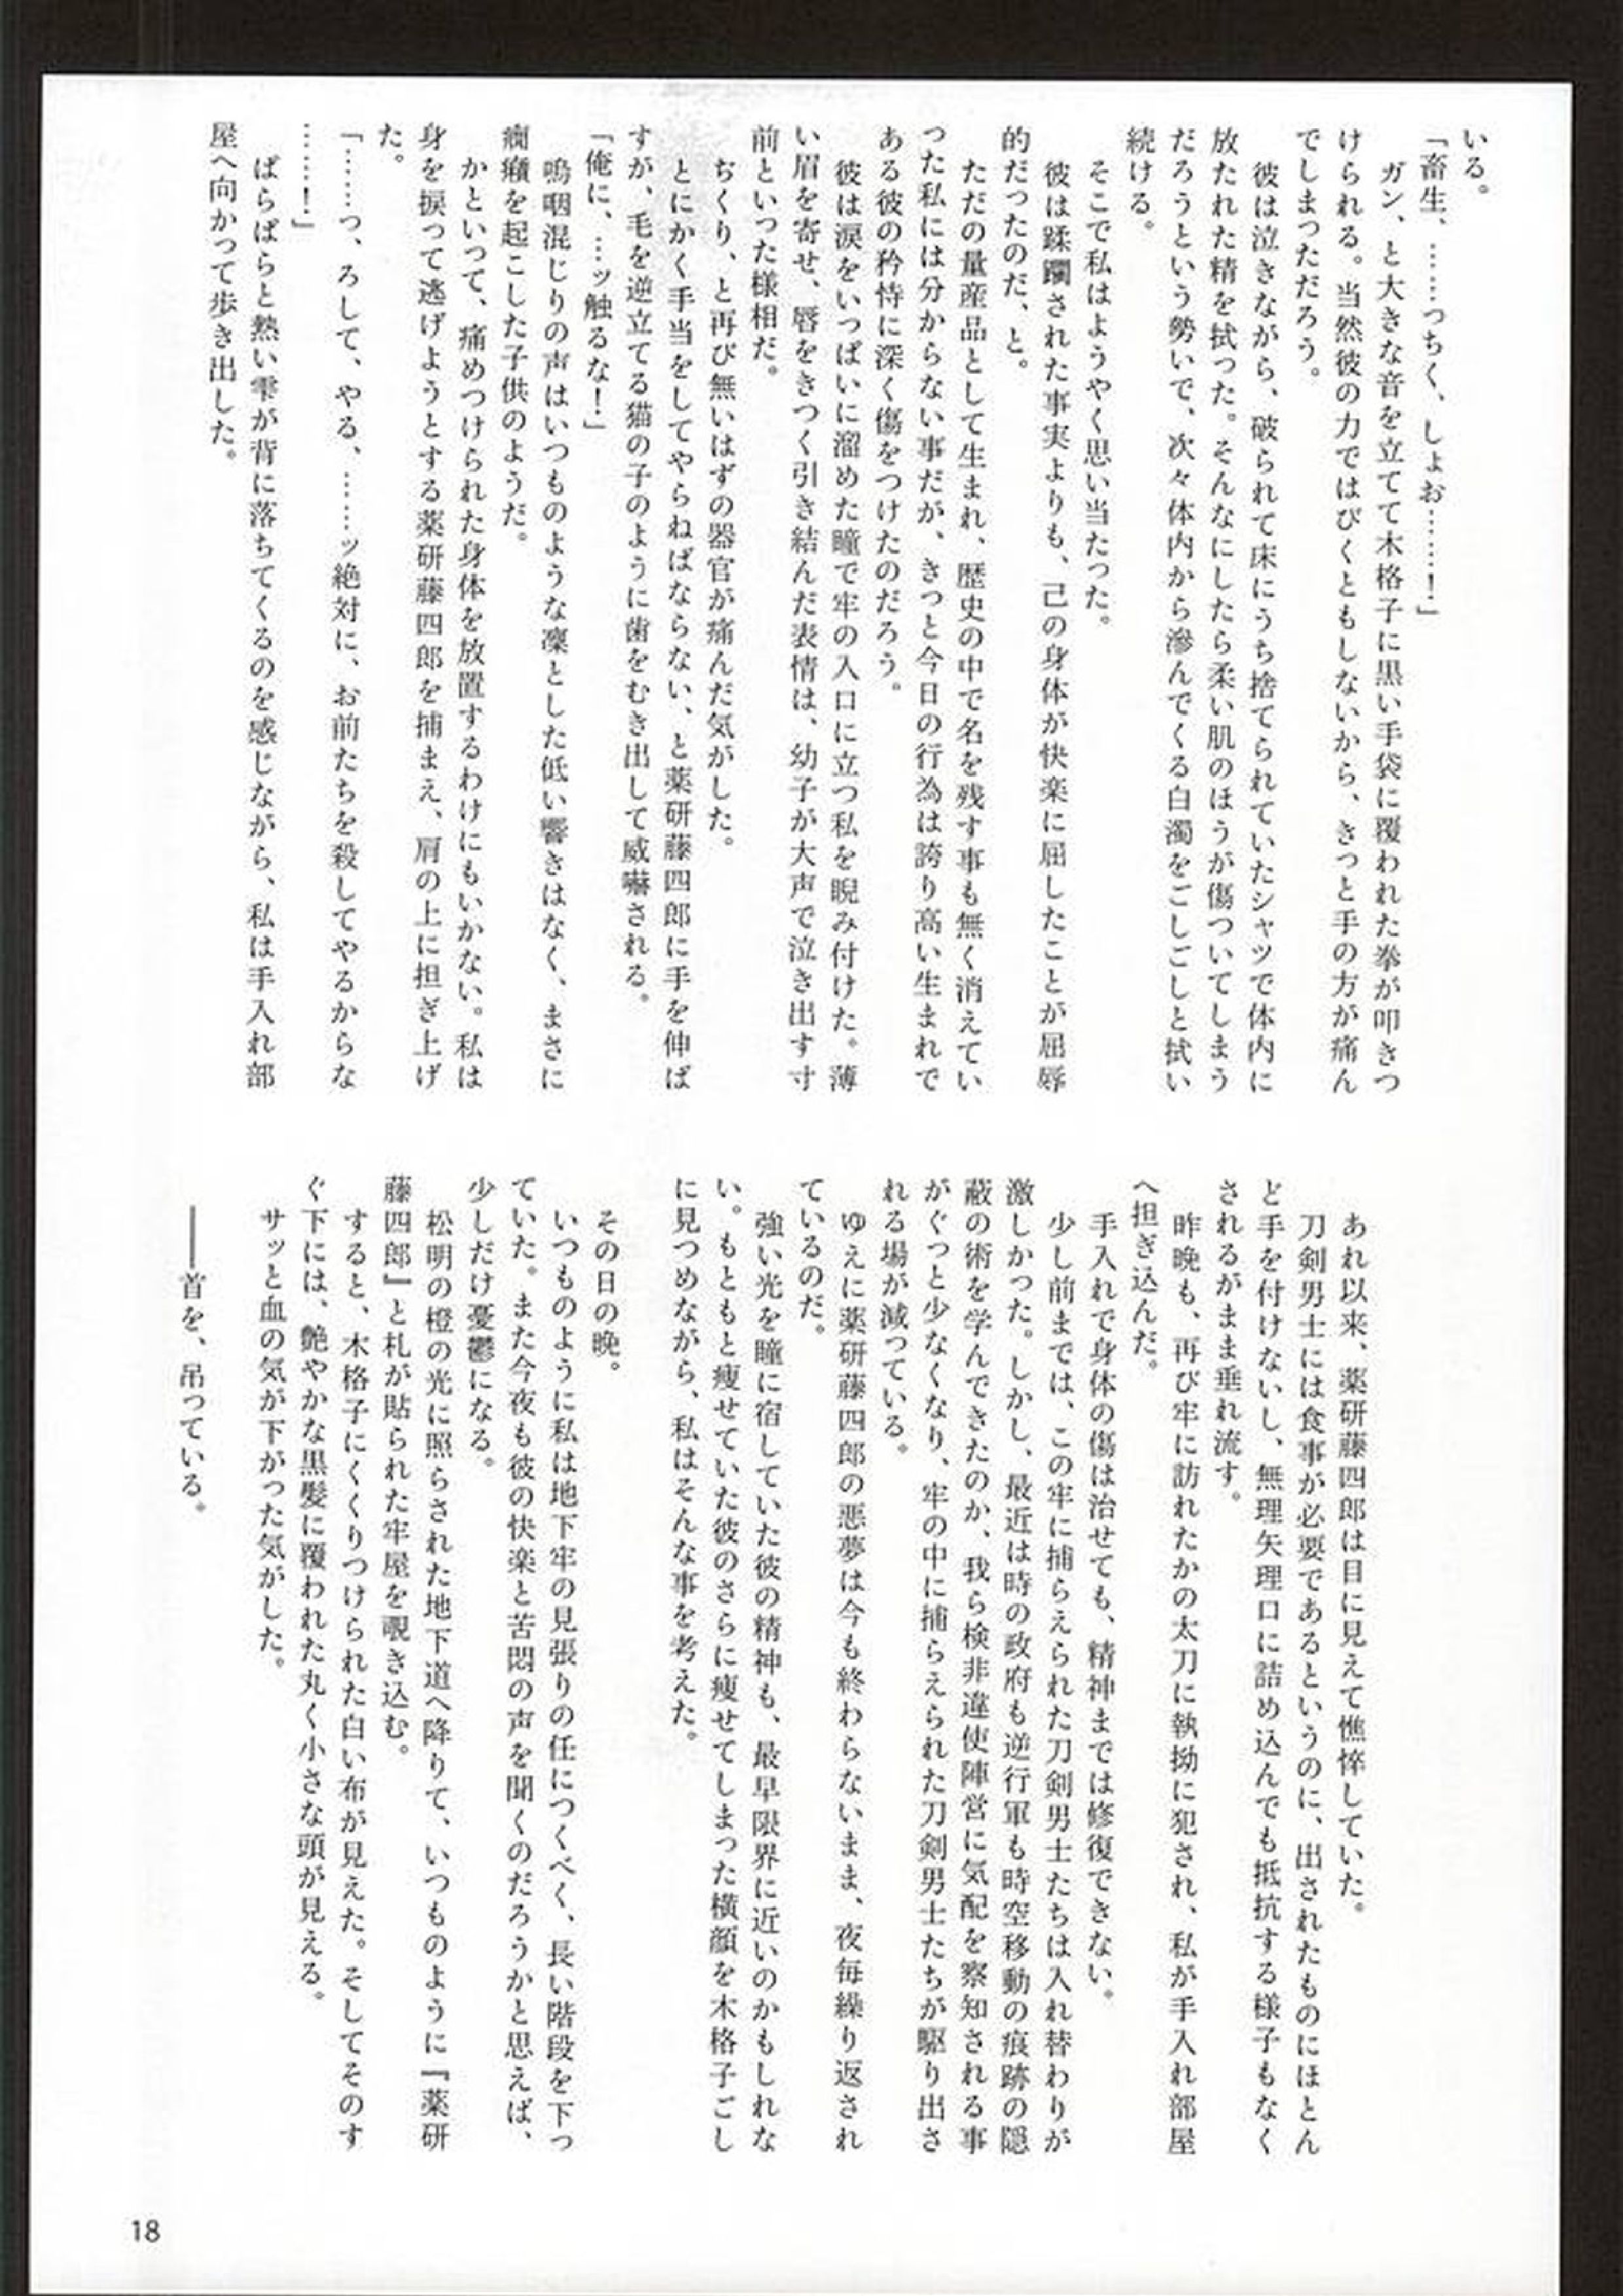 いる。
「畜生、……っちく、しょお……！」
ガン、と大きな音を立てて木格子に黒い手袋に覆われた拳が叩きつ
けられる。当然彼の力ではびくともしないから、きっと手の方が痛ん
でしまっただろう。
彼は泣きながら、破られて床にうち捨てられていたシャツで体内に
放たれた精を拭った。そんなにしたら柔い肌のほうが傷ついてしまう
だろうという勢いで、次々体内から滲んでくる白濁をごしごしと拭い
続ける。
そこで私はようやく思い当たった。
彼は蹂躙された事実よりも、己の身体が快楽に屈したことが屈辱
的だったのだ、と。
ただの量産品として生まれ、歴史の中で名を残す事も無く消えてい
った私には分からない事だが、きっと今日の行為は誇り高い生まれで
ある彼の矜恃に深く傷をつけたのだろう。
彼は涙をいっぱいに溜めた瞳で牢の入口に立つ私を睨み付けた。薄
い眉を寄せ、唇をきつく引き結んだ表情は、幼子が大声で泣き出す寸
前といった様相だ。
ぢくり、と再び無いはずの器官が痛んだ気がした。
とにかく手当をしてやらねばならない、と薬研藤四郎に手を伸ば
すが、毛を逆立てる猫の子のように歯をむき出して威嚇される。
「俺に、…ッ触るな！」
嗚咽混じりの声はいつものような凜とした低い響きはなく、まさに
癇癪を起こした子供のようだ。
かといって、痛めつけられた身体を放置するわけにもいかない。私は
身を捩って逃げようとする薬研藤四郎を捕まえ、肩の上に担ぎ上げ
た。
「……っ、ろして、やる、……ッ絶対に、お前たちを殺してやるからな
……！」
ばらばらと熱い雫が背に落ちてくるのを感じながら、私は手入れ部
屋へ向かって歩き出した。
あれ以来、薬研藤四郎は目に見えて憔悴していた。
刀剣男士には食事が必要であるというのに、出されたものにほとん
ど手を付けないし、無理矢理口に詰め込んでも抵抗する様子もなく
されるがまま垂れ流す。
昨晩も、再び牢に訪れたかの太刀に執拗に犯され、私が手入れ部屋
へ担ぎ込んだ。
手入れで身体の傷は治せても、精神までは修復できない。
少し前までは、この牢に捕らえられた刀剣男士たちは入れ替わりが
激しかった。しかし、最近は時の政府も逆行軍も時空移動の痕跡の隠
蔽の術を学んできたのか、我ら検非違使陣営に気配を察知される事
がぐっと少なくなり、牢の中に捕らえられた刀剣男士たちが駆り出さ
れる場が減っている。
ゆえに薬研藤四郎の悪夢は今も終わらないまま、夜毎繰り返され
ているのだ。
強い光を瞳に宿していた彼の精神も、最早限界に近いのかもしれな
い。もともと痩せていた彼のさらに痩せてしまった横顔を木格子ごし
に見つめながら、私はそんな事を考えた。
その日の晩。
いつものように私は地下牢の見張りの任につくべく、長い階段を下っ
ていた。また今夜も彼の快楽と苦悶の声を聞くのだろうかと思えば、
少しだけ憂鬱になる。
松明の橙の光に照らされた地下道へ降りて、いつものように『薬研
藤四郎』と札が貼られた牢屋を覗き込む。
すると、木格子にくくりつけられた白い布が見えた。そしてそのす
ぐ下には、艶やかな黒髪に覆われた丸く小さな頭が見える。
サッと血の気が下がった気がした。
――首を、吊っている。
18